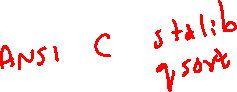 ANSI C stdlib
qsort